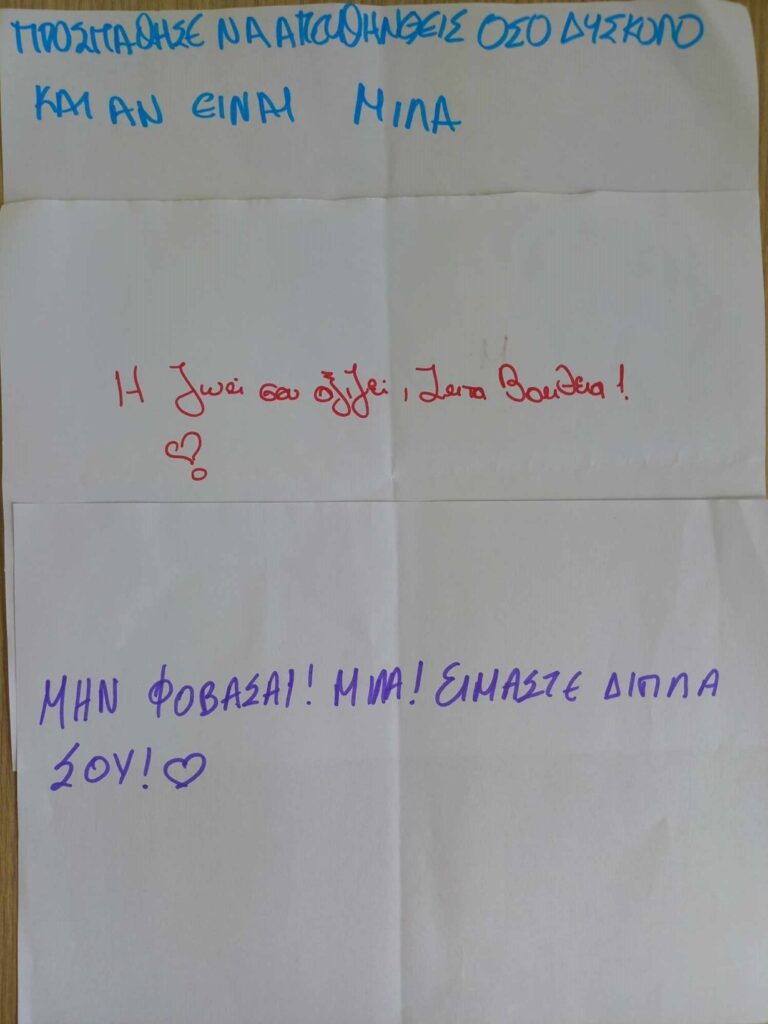 ΠΡΟΣΠΑΘΗΣΕ ΝΑ ΑΠΕΥΘΗΝΘΕΙΣ ΟΣΟ ΔΥΣΚΟΛΟ
ΚΑΙ ΑΝ ΕΙΝΑΙ ΜΙΛΑ
Η ζωή σου αξίζει, Ζήτα Βοήθεια!
ΜΗΝ ΦΟΒΑΣΑΙ! ΜΙΛΑ! ΕΙΜΑΣΤΕ ΔΙΠΛΑ
ΣΟΥ! ♡